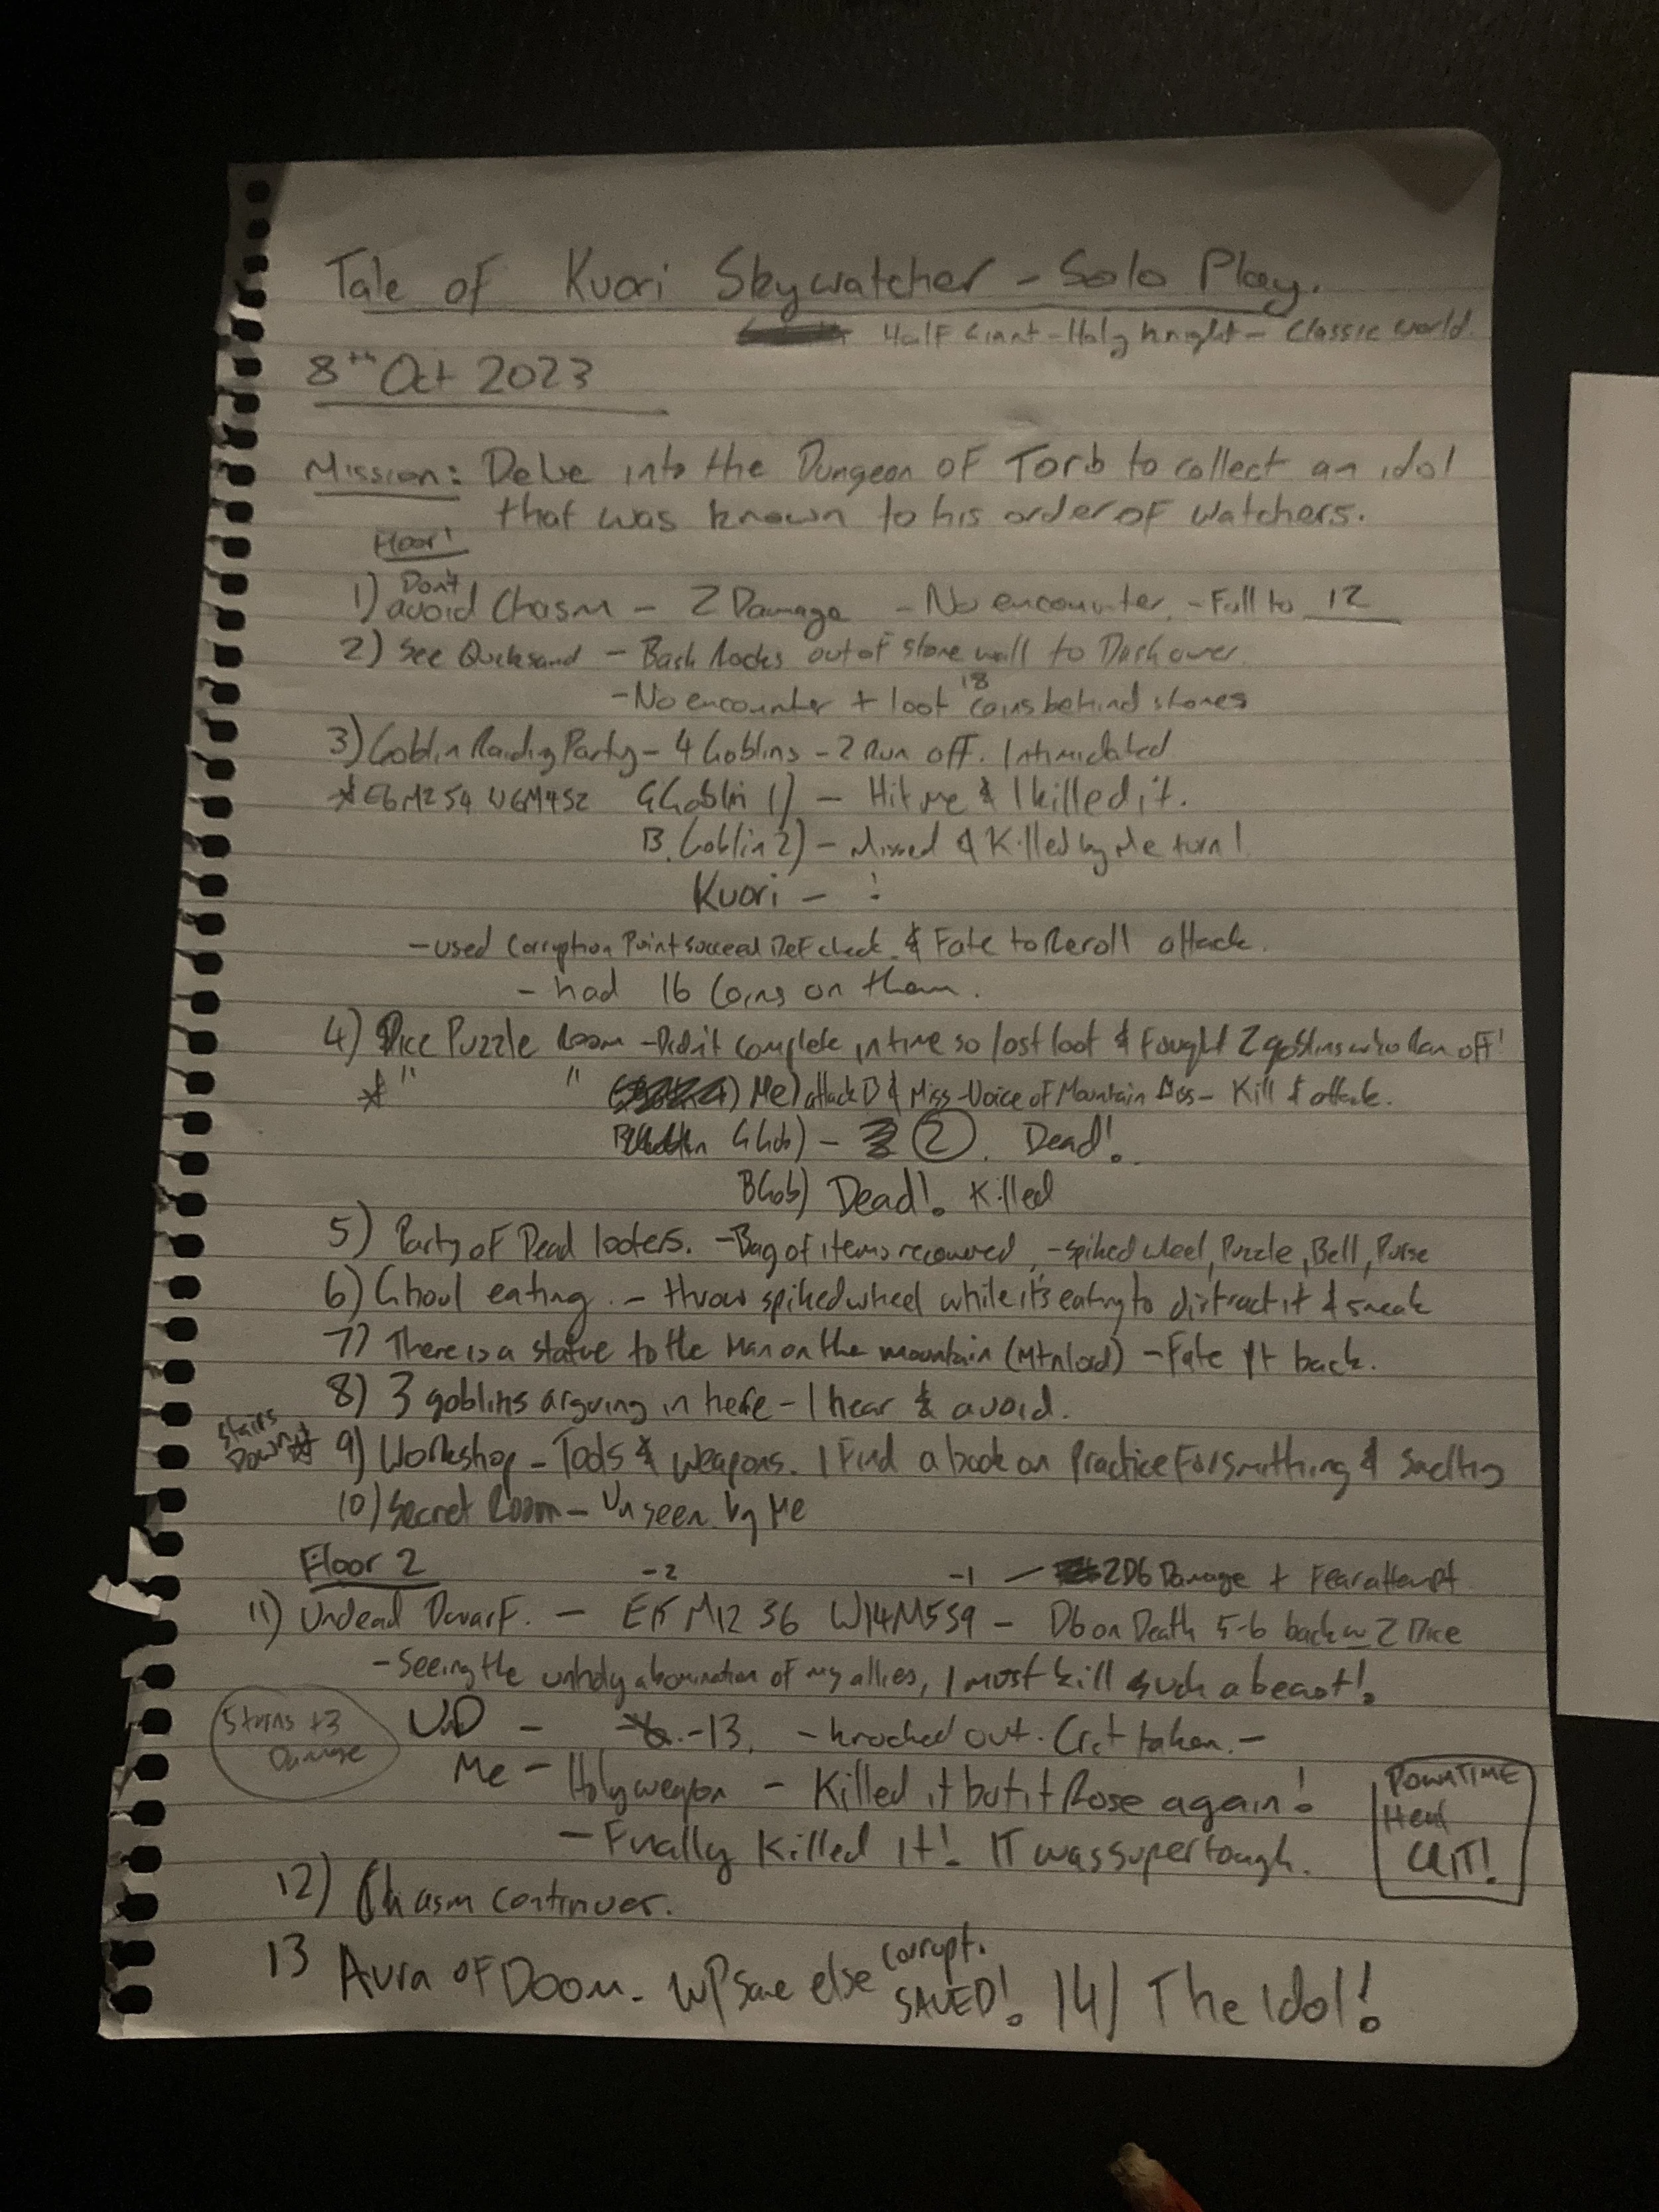 Tale of Kuori Skywatcher - Solo Play.
Half Giant - Holy Knight - Classic World
8th Oct 2023
Mission: Delve into the Dungeon of Torb to collect an idol
that was known to his order of watchers.
Floor 1
1) Don't avoid Chasm - 2 Damage - No encounter. - Fall to 12
2) See Quicksand - Bash Rocks out of stone wall to Dash over.
- No encounter + loot 18 coins behind stones
3) Goblin Raiding Party - 4 Goblins - 2 Run off. Intimidated
* E6 M2 S4 W6 M4 S2 G Goblin 1) - Hit me & I killed it.
B. Goblin 2) - Missed & Killed by Me turn 1
Kuori - :
- used Corruption Point succeed Def check. & Fate to Reroll attack.
- had 16 Coins on them.
4) Dice Puzzle Room - Didn't complete in time so lost loot & fought 2 goblins who Ran off!
* " " Me) attack B & Miss - Voice of Mountain - Kill & attack.
G Gob) - 2. Dead!
B Gob) Dead! Killed
5) Party of Dead looters. - Bag of items recovered, - spiked wheel, Puzzle, Bell, Purse
6) Ghoul eating. - throw spiked wheel while it's eating to distract it & sneak
7) There is a statue to the Man on the mountain (Mtn lord) - Fate Pt back.
8) 3 goblins arguing in here - I hear & avoid.
Stairs Down * 9) Workshop - Tools & Weapons. I Find a book on Practice For smithing & Smelting
10) Secret Room - Unseen by Me
Floor 2 -2 -1 - 2D6 Damage + Fear attempt
11) Undead Dwarf. - E15 M12 S6 W14 M5 S9 - D6 on Death 5-6 back w 2 Dice
- Seeing the unholy abomination of my allies, I must kill such a beast!
5 turns +3 Damage
UnD - -13. - knocked out. Crit taken. -
Me - Holy weapon - Killed it but it Rose again!
- Finally Killed it! IT was super tough.
DOWNTIME
Heal
CRIT!
12) Chasm continues.
13 Aura of Doom. WP Save else corrupt. SAVED! 14) The Idol!